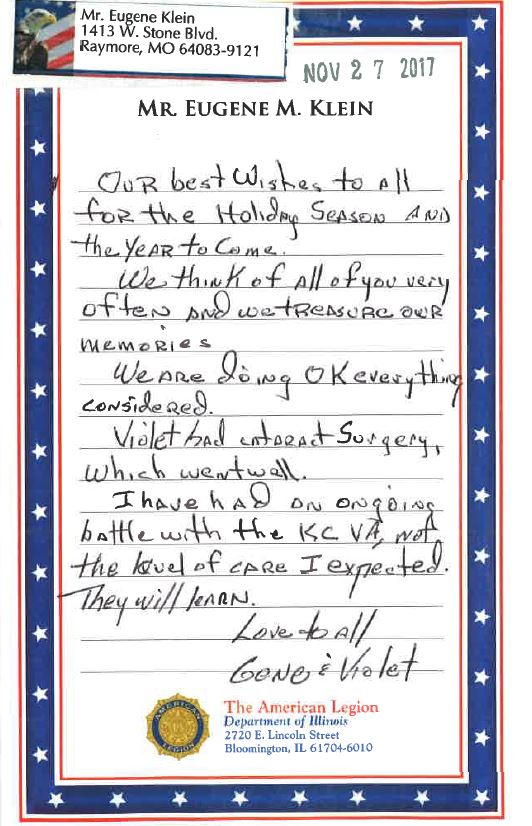 Mr. Eugene Klein
1413 W. Stone Blvd.
Raymore, MO 64083-9121
NOV 27 2017
MR. EUGENE M. KLEIN
OUR best Wishes to All
for the Holiday SEASON AND
the YEAR to Come.
We think of All of you very
often AND we tREASURE OUR
memories
We ARE doing OK everything
CONSIDERED.
Violet had cataract Surgery,
Which went well.
I have had an ongoing
battle with the KC VA, not
the level of CARE I expected.
They will leARN.
Love to All
GENE & Violet
AMERICAN
LEGION
The American Legion
Department of Illinois
2720 E. Lincoln Street
Bloomington, IL 61704-6010